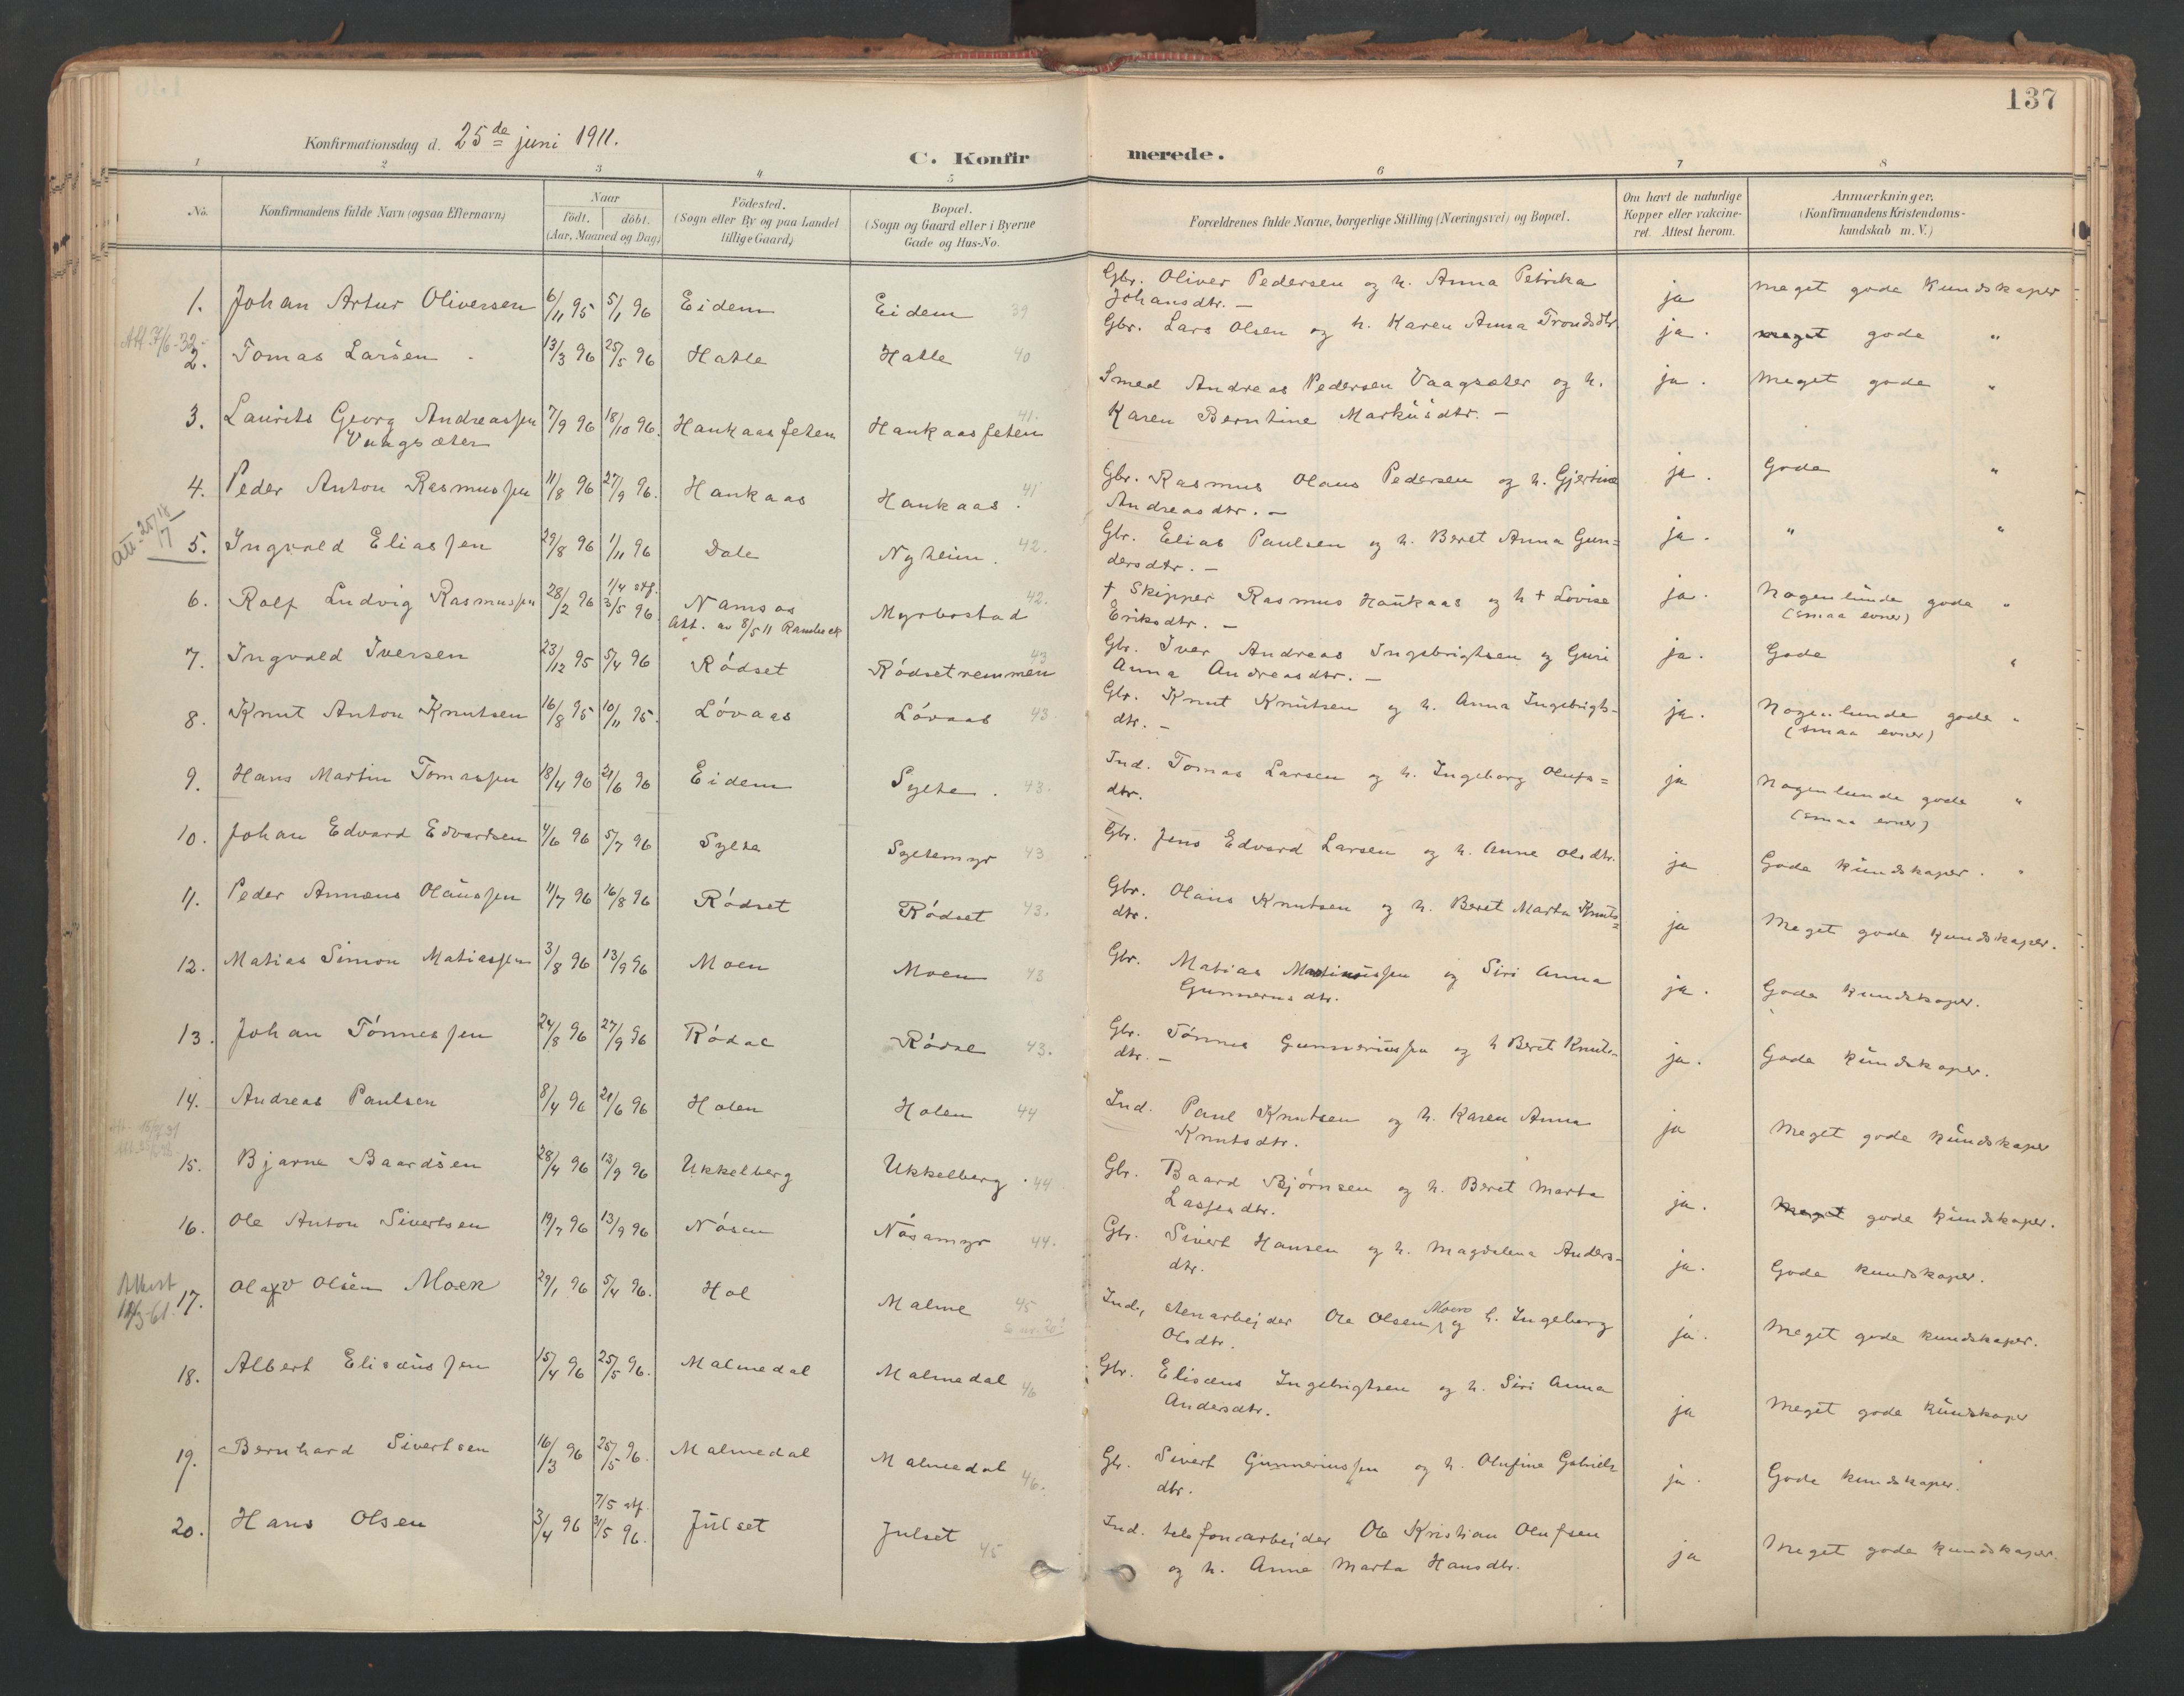 137
Konfirmationsdag d. 25de juni 1911.
C. Konfirmerede.
1 2 3 4 5 6 7 8
No.
Konfirmandens fulde Navn (ogsaa Efternavn)
Naar
födt. döbt.
(Aar, Maaned og Dag)
Födested.
(Sogn eller By og paa Landet
tillige Gaard)
Bopæl.
(Sogn og Gaard eller i Byerne
Gade og Hus-No.
Forældrenes fulde Navne, borgerlige Stilling (Næringsvei) og Bopæl.
Om havt de naturlige
Kopper eller vakcine-
ret. Attest herom.
Anmærkninger.
(Konfirmandens Kristendoms-
kundskab m. V.)
1. Johan Artur Oliversen 6/11 95 5/1 96 Eidem Eidem 39 Gbr. Oliver Pedersen og h. Anna Petrika ja meget gode Kundskaper
Johansdtr. —
Att 7/6-32-
2. Tomas Larsen 13/3 96 25/5 96 Hatle Hatle 40 Gbr. Lars Olsen og h. Karen Anna Trondsdtr. ja. meget gode "
3. Laurits Georg Andreassen 7/9 96 18/10 96. Haukaasfeten Haukaasfeten 41. Smed Andreas Pedersen Vaagsæter og h. ja. Meget gode "
Vaagsæter Karen Berntine Markusdtr. —
4. Peder Anton Rasmussen 11/8 96 27/9 96. Haukaas Haukaas. 41 Gbr. Rasmus Olaus Pedersen og h. Gjertine ja. Gode "
Andreasdtr. —
5. Ingvald Eliassen 29/8 96 1/11 96 Dale Nyheim. 42. Gbr. Elias Paulsen og h. Beret Anna Gun= ja. " "
dersdtr. —
6. Rolf Ludvig Rasmussen 28/2 96 1/4 stf. 3/5 96 Namsos Myrbostad 42. † Skipper Rasmus Haukaas og h † Lovise ja. Nogenlunde gode "
Att. av 8/5 11 Eriksdtr. — (smaa evner)
7. Ingvald Iversen 23/12 95 5/4 96 Rödset Rödsetremmen 43 Gbr. Iver Andreas Ingebrigtsen og Guri ja. Gode "
Anna Andreasdtr. —
8. Knut Anton Knutsen 16/8 95 10/11 95. Lövaas Lövaas 43. Gbr. Knut Knutsen og h. Anna Ingebrigts- ja. Nogenlunde gode "
dtr. — (smaa evner)
9. Hans Martin Tomassen 18/4 96 21/6 96 Eidem Sylte. 43. Ind. Tomas Larsen og h. Ingeborg Olufs= ja Nogenlunde gode "
dtr. (smaa evner)
10. Johan Edvard Edvardsen 4/6 96 5/7 96 Sylte Syltemyr 43 Gbr. Jens Edvard Larsen og h. Anne Olsdtr. ja Gode kundskaper. "
11. Peder Annæus Olaussen 11/7 96 16/8 96 Rödset Rödset 43. Gbr. Olaus Knutsen og h. Beret Marta Knuts= ja Meget gode kundskaper.
dtr.
12. Matias Simon Matiassen 3/8 96 13/9 96 Moen Moen 43 Gbr. Matias Martinussen og Siri Anna ja. Gode kundskaper.
Gunnerusdtr.
13. Johan Tönnessen 24/8 96 27/9 96 Rödal Rödal 43. Gbr. Tönnes Gunneriussen og h Beret Knuts- ja. Gode kundskaper.
dtr. —
14. Andreas Paulsen 8/4 96 21/6 96 Holen Holen 44 Ind. Paul Knutsen og h. Karen Anna ja Meget gode kundskaper
Knutsdtr.
15. Bjarne Baardsen 28/4 96 13/9 96 Ukkelberg Ukkelberg. 44 Gbr. Baard Bjørnsen og h. Beret Marta ja. meget gode kundskaper.
Lassesdtr.
16. Ole Anton Sivertsen 19/7 96 13/9 96 Nösen Nösamyr 44. Gbr. Sivert Hansen og h. Magdalena Anders- ja. Gode kundskaper.
dtr.
Attest
17. Olav Olsen Moek 29/1 96 5/4 96. Hol Malme 45 Ind., stenarbeider Ole Olsen og h. Ingeborg ja. Meget gode kundskaper.
Olsdtr.
18. Albert Elisæussen 15/4 96 25/5 96. Malmedal Malmedal 46 Gbr. Elisæus Ingebrigtsen og h. Siri Anna ja Meget gode kundskaper
Andersdtr.
19. Bernhard Sivertsen 16/3 96 25/5 96. Malmedal Malmedal 46. Gbr. Sivert Gunneriussen og h. Olufine Gabriels ja. Gode kundskaper.
dtr.
20. Hans Olsen 3/4 96 7/5 stf. 31/5 96. Julset Julset 45 Ind. telefonarbeider Ole Kristian Olufsen ja Meget gode kundskaper.
og h. Anne Marta Hansdtr.